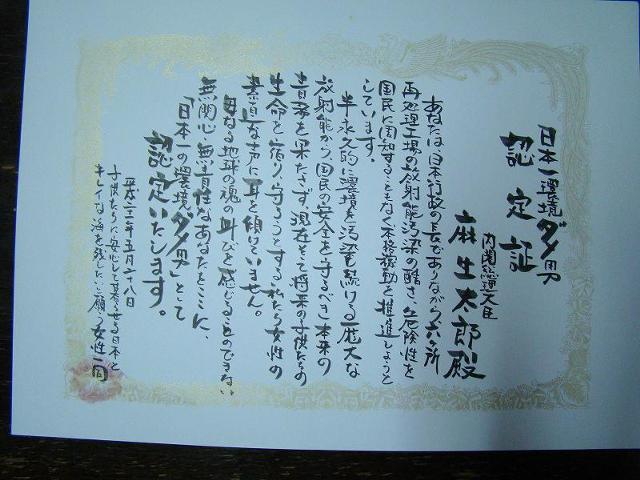 日本一環境ダメ男
認定証
内閣総理大臣
麻生太郎殿
あなたは、日本行政の長でありながら六ヶ所
再処理工場の放射能汚染の酷さ、危険性を
国民に周知することもなく本格稼動を推進しようと
しています。
半永久的に環境を汚染し続ける厖大な
放射能から、国民の安全を守るべき本来の
責務を果たさず、現在そして将来の子供たちの
生命を宿り守ろうとする私たち女性の
素直な声に耳を傾けていません。
母なる地球の魂の叫びを感じることのできない
無関心、無責任なあなたをここに、
「日本一の環境ダメ男」として
認定いたします。
平成二一年五月二八日
子供たちに安心して暮らせる日本と
キレイな海を残したいと願う女性一同